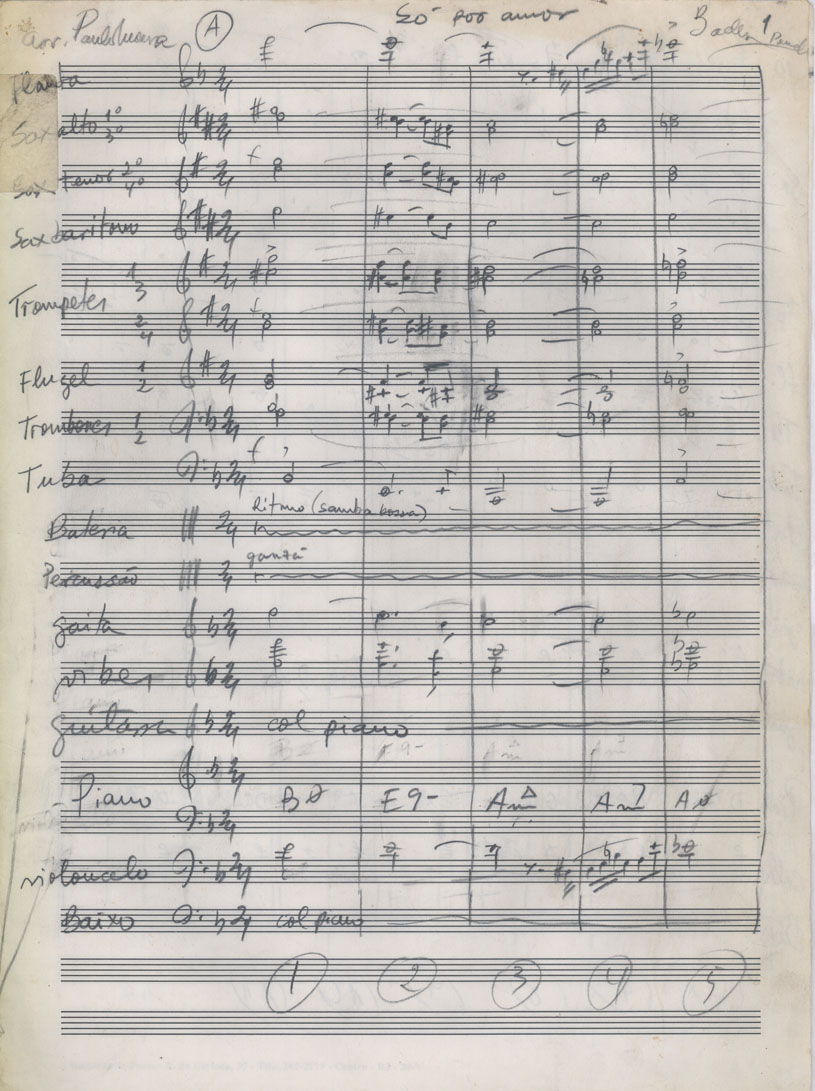 Só por amor
arr. Paulo Moura A Baden 1
Flauta
Sax alto 1º 3º
Sax tenor 2º 4º f
Sax baritono
Trompetes 1 3
2 4 f
Flugel 1 2
Trombones 1 2
Tuba f
Ritmo (samba bossa)
Bateria
ganzá
Percussão
gaita
vibes
guitarra col piano
Piano BØ E9- Am△ Am7 AØ
violoncelo
Baixo col piano
1 2 3 4 5